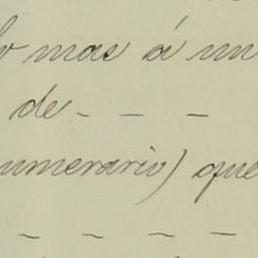 mas á un
de - - -
umerario) que
- - - -